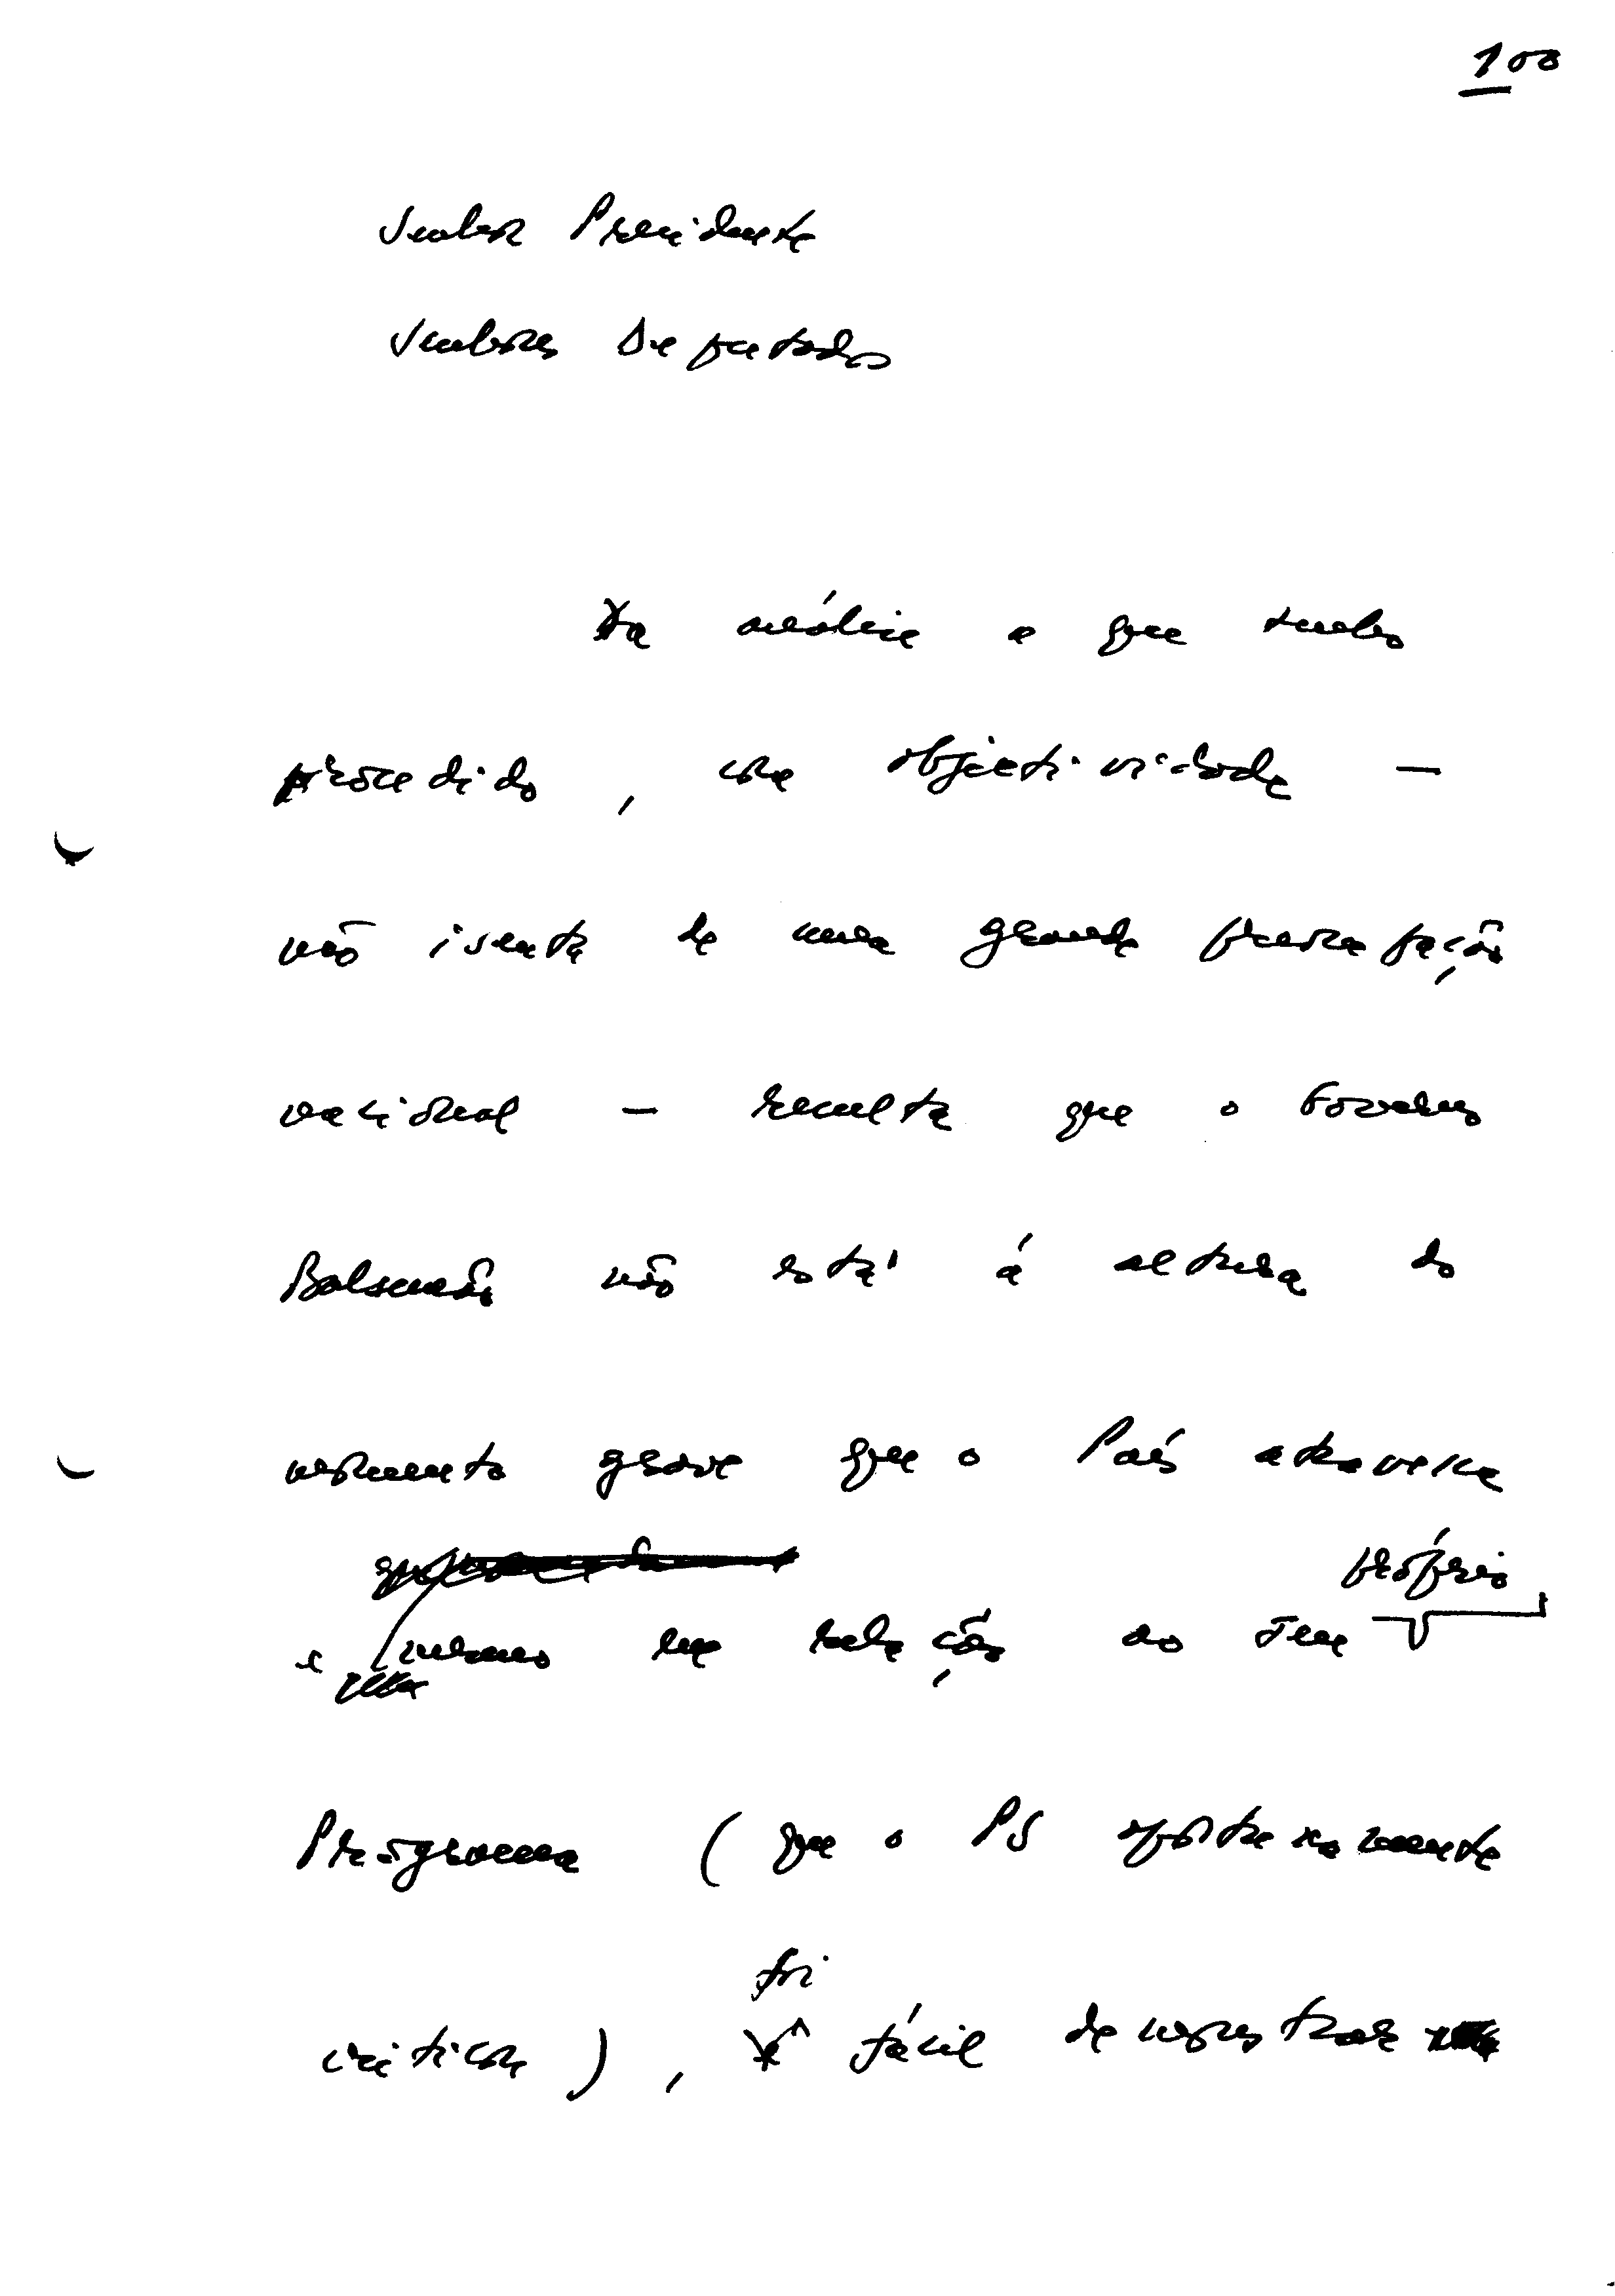 100
Senhor Presidente
Senhores Deputados
Da análise a que tenho
procedido, com objectividade —
não isenta de uma grande preocupação
nacional — resulta que o Governo
Balsemão não está á altura do
momento grave que o País atravessa
próprio
e mesmo em relação ao seu
Programa (que o PS oportunamente
criticou), foi fácil demonstrar